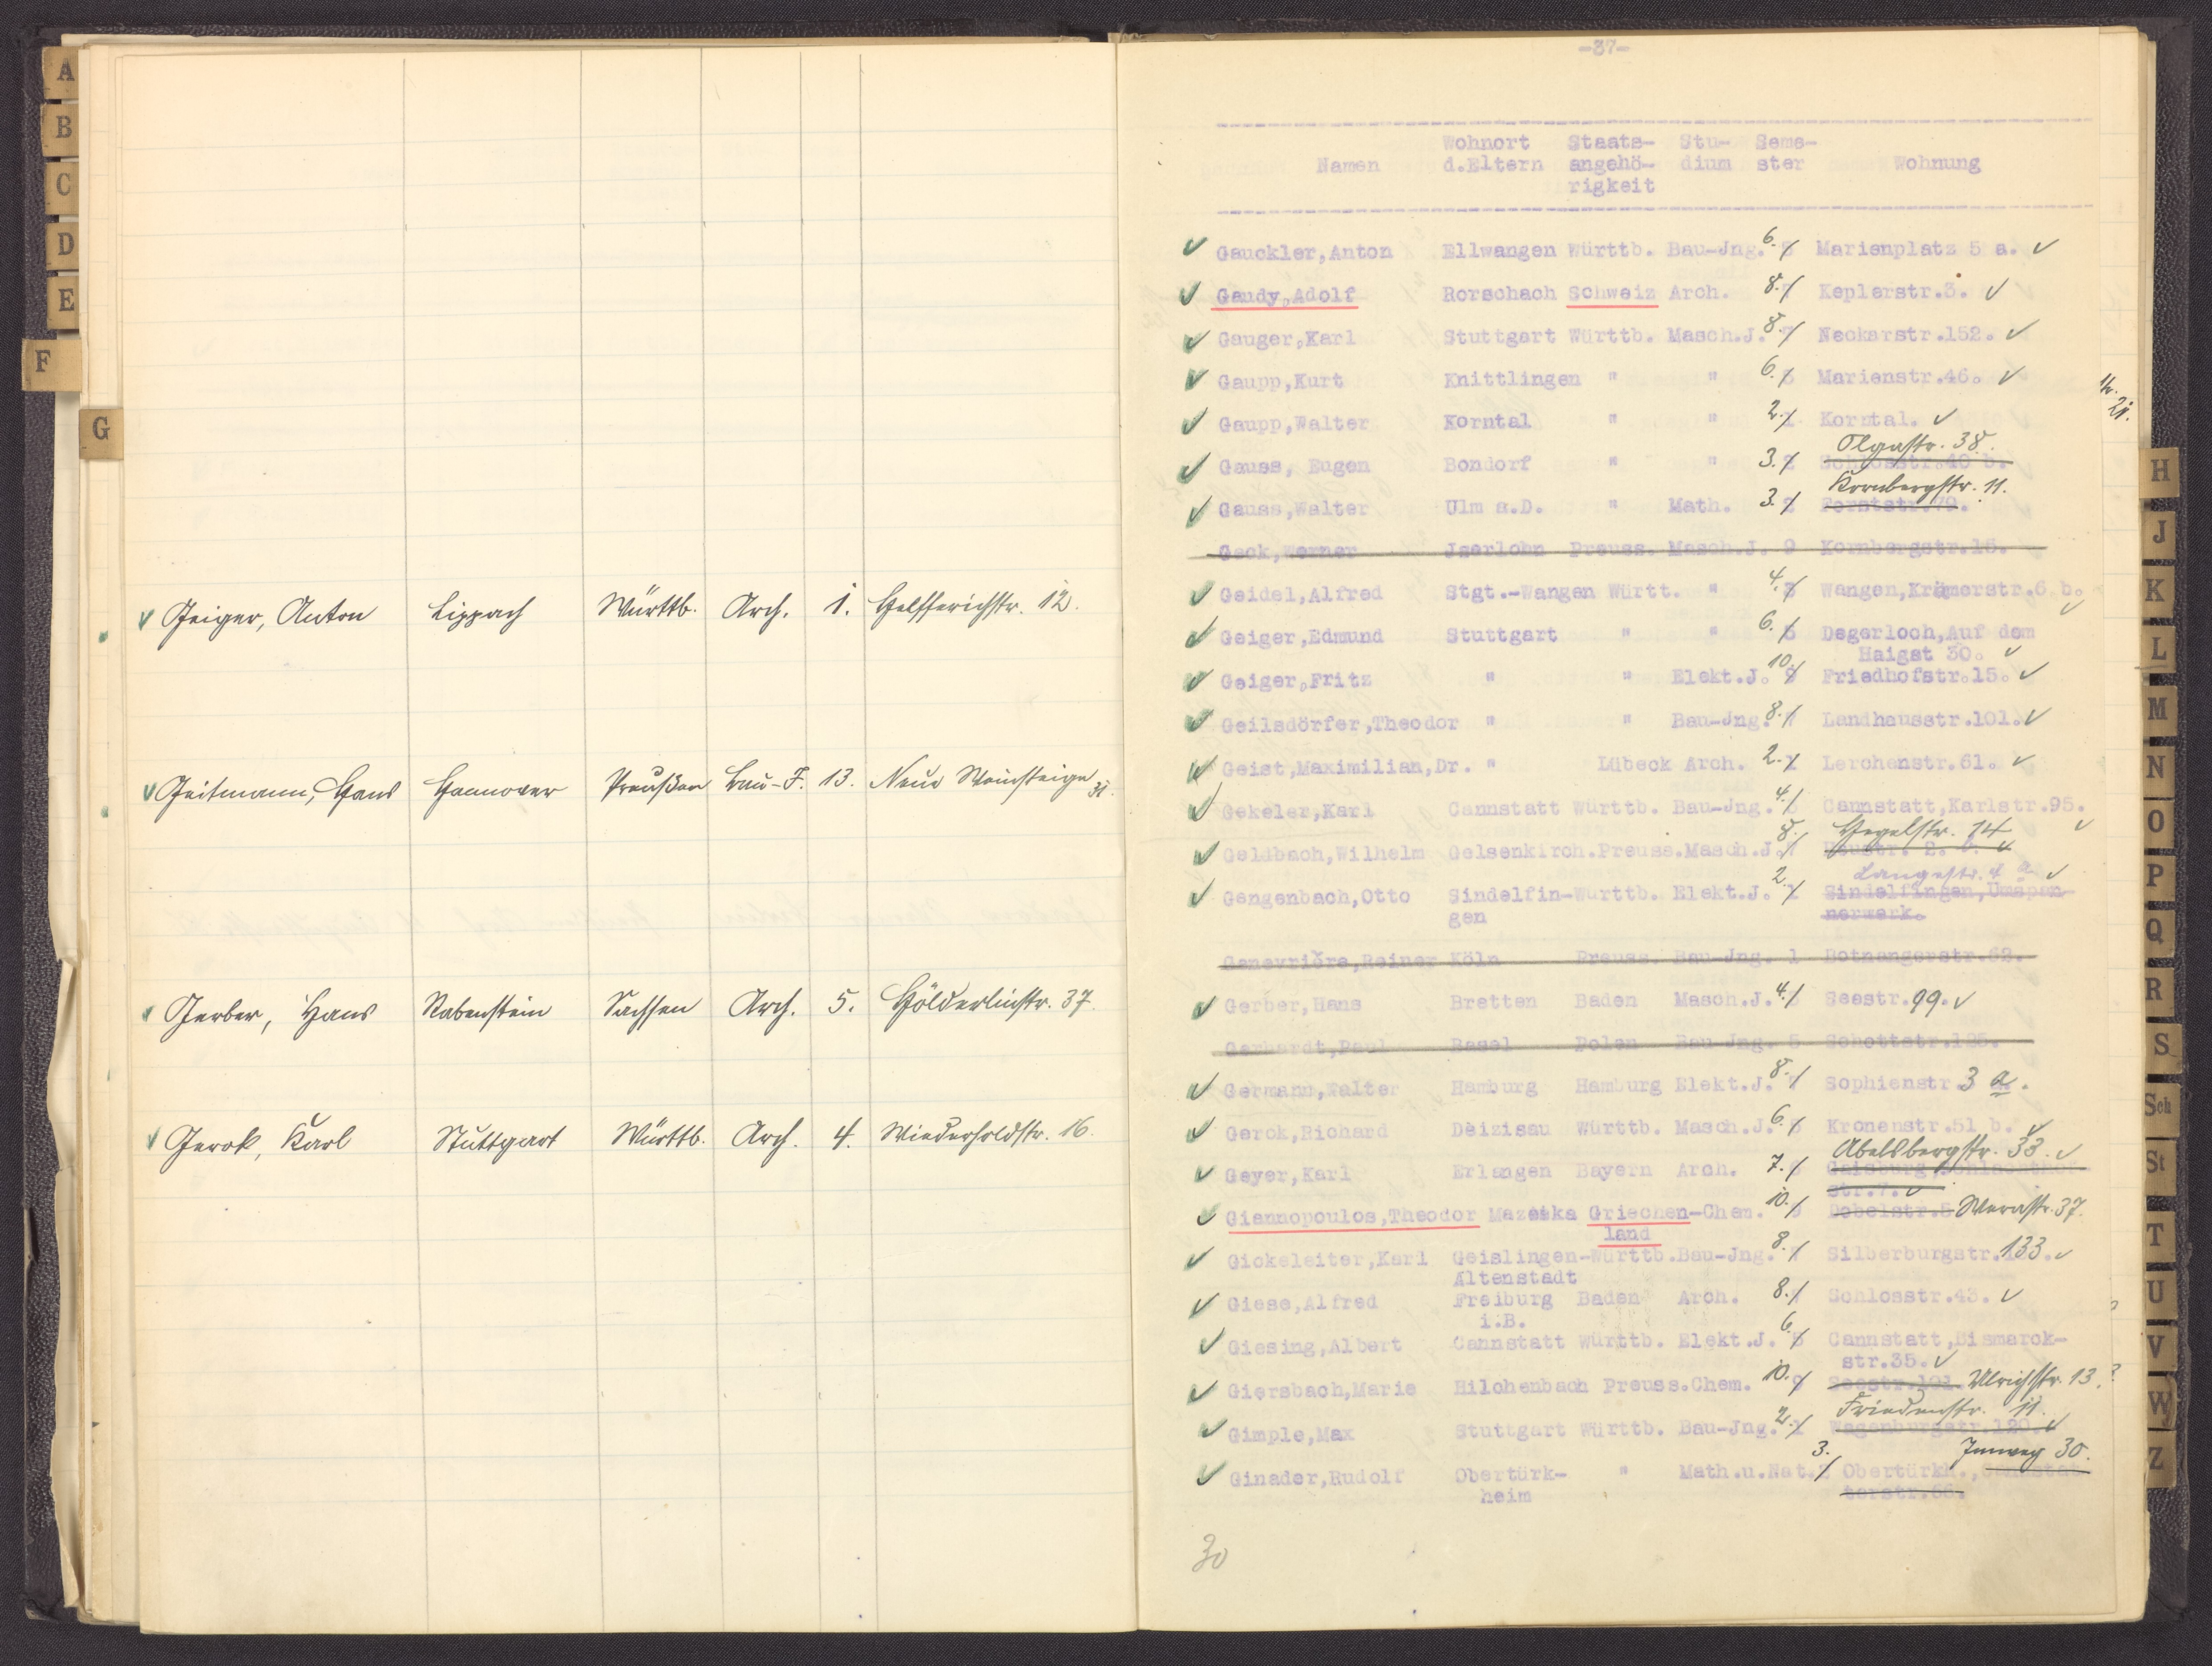 A
B
C
D
E
F
G
Geiger, Anton Lippach Württb. Arch. 1. Helfferichstr. 12.
Geitmann, Hans Hannover Preußen Bau-F. 13. Neue Weinsteige
Gerber, Hans Rabenstein Sachsen Arch. 5. Hölderlinstr. 37.
Gerok, Karl Stuttgart Württb. Arch. 4. Wiederholdstr. 16.
-37-
Wohnort Staats- Stu- Semes-
Namen d.Eltern angehö- dium ster Wohnung
rigkeit
Gauckler,Anton Ellwangen Württb. Bau-Jng. 6. Marienplatz 5 a.
Gaudy,Adolf Rorschach Schweiz Arch. 8. Keplerstr.3.
Gauger,Karl Stuttgart Württb. Masch.J. 8. Neckarstr.152.
Gaupp,Kurt Knittlingen " " 6. Marienstr.46.
Gaupp,Walter Korntal " " 2. Korntal.
Olgastr. 38.
Gauss, Eugen Bondorf " " 3. 2 Schlosstr.40 b.
Kornbergstr. 11.
Gauss,Walter Ulm a.D. " Math. 3. 2 Forststr.79.
Geck,Werner Jserlohn Preuss. Masch.J. 9 Kornbergstr.15.
Geidel,Alfred Stgt.-Wangen Württ. " 4. 3 Wangen,Krämerstr.6 b.
Geiger,Edmund Stuttgart " " 6. 5 Degerloch,Auf dem
Haigst 30.
Geiger,Fritz " " Elekt.J. 10. 9 Friedhofstr.15.
Geilsdörfer,Theodor " " Bau-Jng. 8. Landhausstr.101.
Geist,Maximilian,Dr. " Lübeck Arch. 2. Lerchenstr.61.
Gekeler,Karl Cannstatt Württb. Bau-Jng. 4. Cannstatt,Karlstr.95.
Hegelstr. 14
Geldbach,Wilhelm Gelsenkirch.Preuss.Masch.J. 8.
Langestr. 4 a
Gengenbach,Otto Sindelfin-Württb. Elekt.J. 2. Sindelfingen,Umspan-
gen nerwerk.
Genevrière,Reiner Köln Preuss. Bau-Jng. 1 Botnangerstr.62.
Gerber,Hans Bretten Baden Masch.J. 4. Seestr.99.
Gerhardt,Paul Basel Polen Bau-Jng. 5 Schottstr.125.
Germann,Walter Hamburg Hamburg Elekt.J. 8. Sophienstr 3 a.
Gerok,Richard Deizisau Württb. Masch.J. 6. 5 Kronenstr.51 b.
Abelsbergstr. 33.
Geyer,Karl Erlangen Bayern Arch. 7. Gaisburg,
str.7.
Giannopoulos,Theodor Griechen-Chem. 10. 9 Werastr. 37.
land
Gickeleiter,Karl Geislingen-Württb.Bau-Jng. 8. Silberburgstr.133.
Altenstadt
Giese,Alfred Freiburg Baden Arch. 8. Schlosstr.43.
i.B.
Giesing,Albert Cannstatt Württb. Elekt.J. 6. 5 Cannstatt,Bismarck-
str.35.
Giersbach,Marie Hilchenbach Preuss.Chem. 10. 9 Seestr.101. Ulrichstr. 13.
Friedenstr. 11.
Gimple,Max Stuttgart Württb. Bau-Jng. 2. 1 Wagenburgstr.120.
Innweg 30.
Ginader,Rudolf Obertürk- " Math.u.Nat. 3. Obertürkh.,Cannstat-
heim terstr.
30
H
J
K
L
M
N
O
P
Q
R
S
Sch
St
T
U
V
W
Z